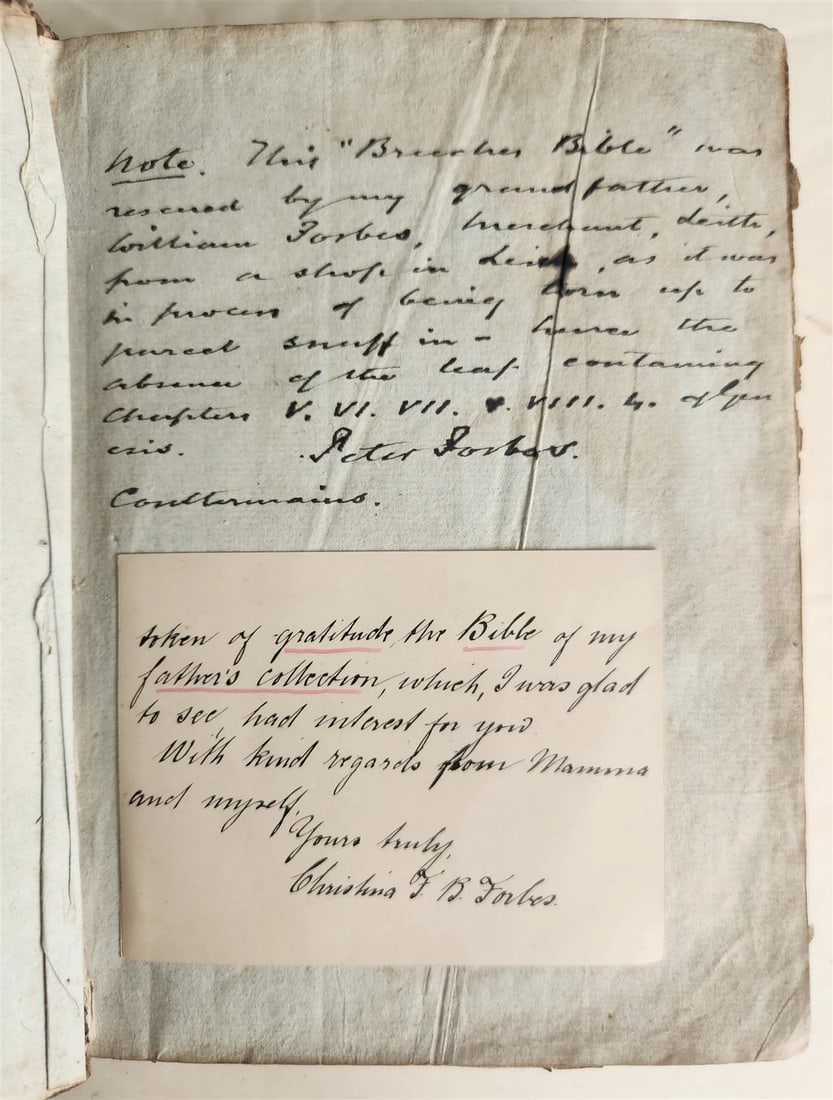 Note. This "Breeches Bible" was
rescued by my grandfather,
William Forbes, Merchant, Leith,
from a shop in Leith, as it was
in process of being torn up to
parcel snuff in - hence the
absence of the leaf containing
Chapters V. VI. VII. & VIII. 4. of Gen
esis. Peter Forbes.
Conltermains.
token of gratitude, the Bible of my
father's collection, which, I was glad
to see, had interest for you
With kind regards from Mamma
and myself,
Yours truly,
Christina F. B. Forbes.